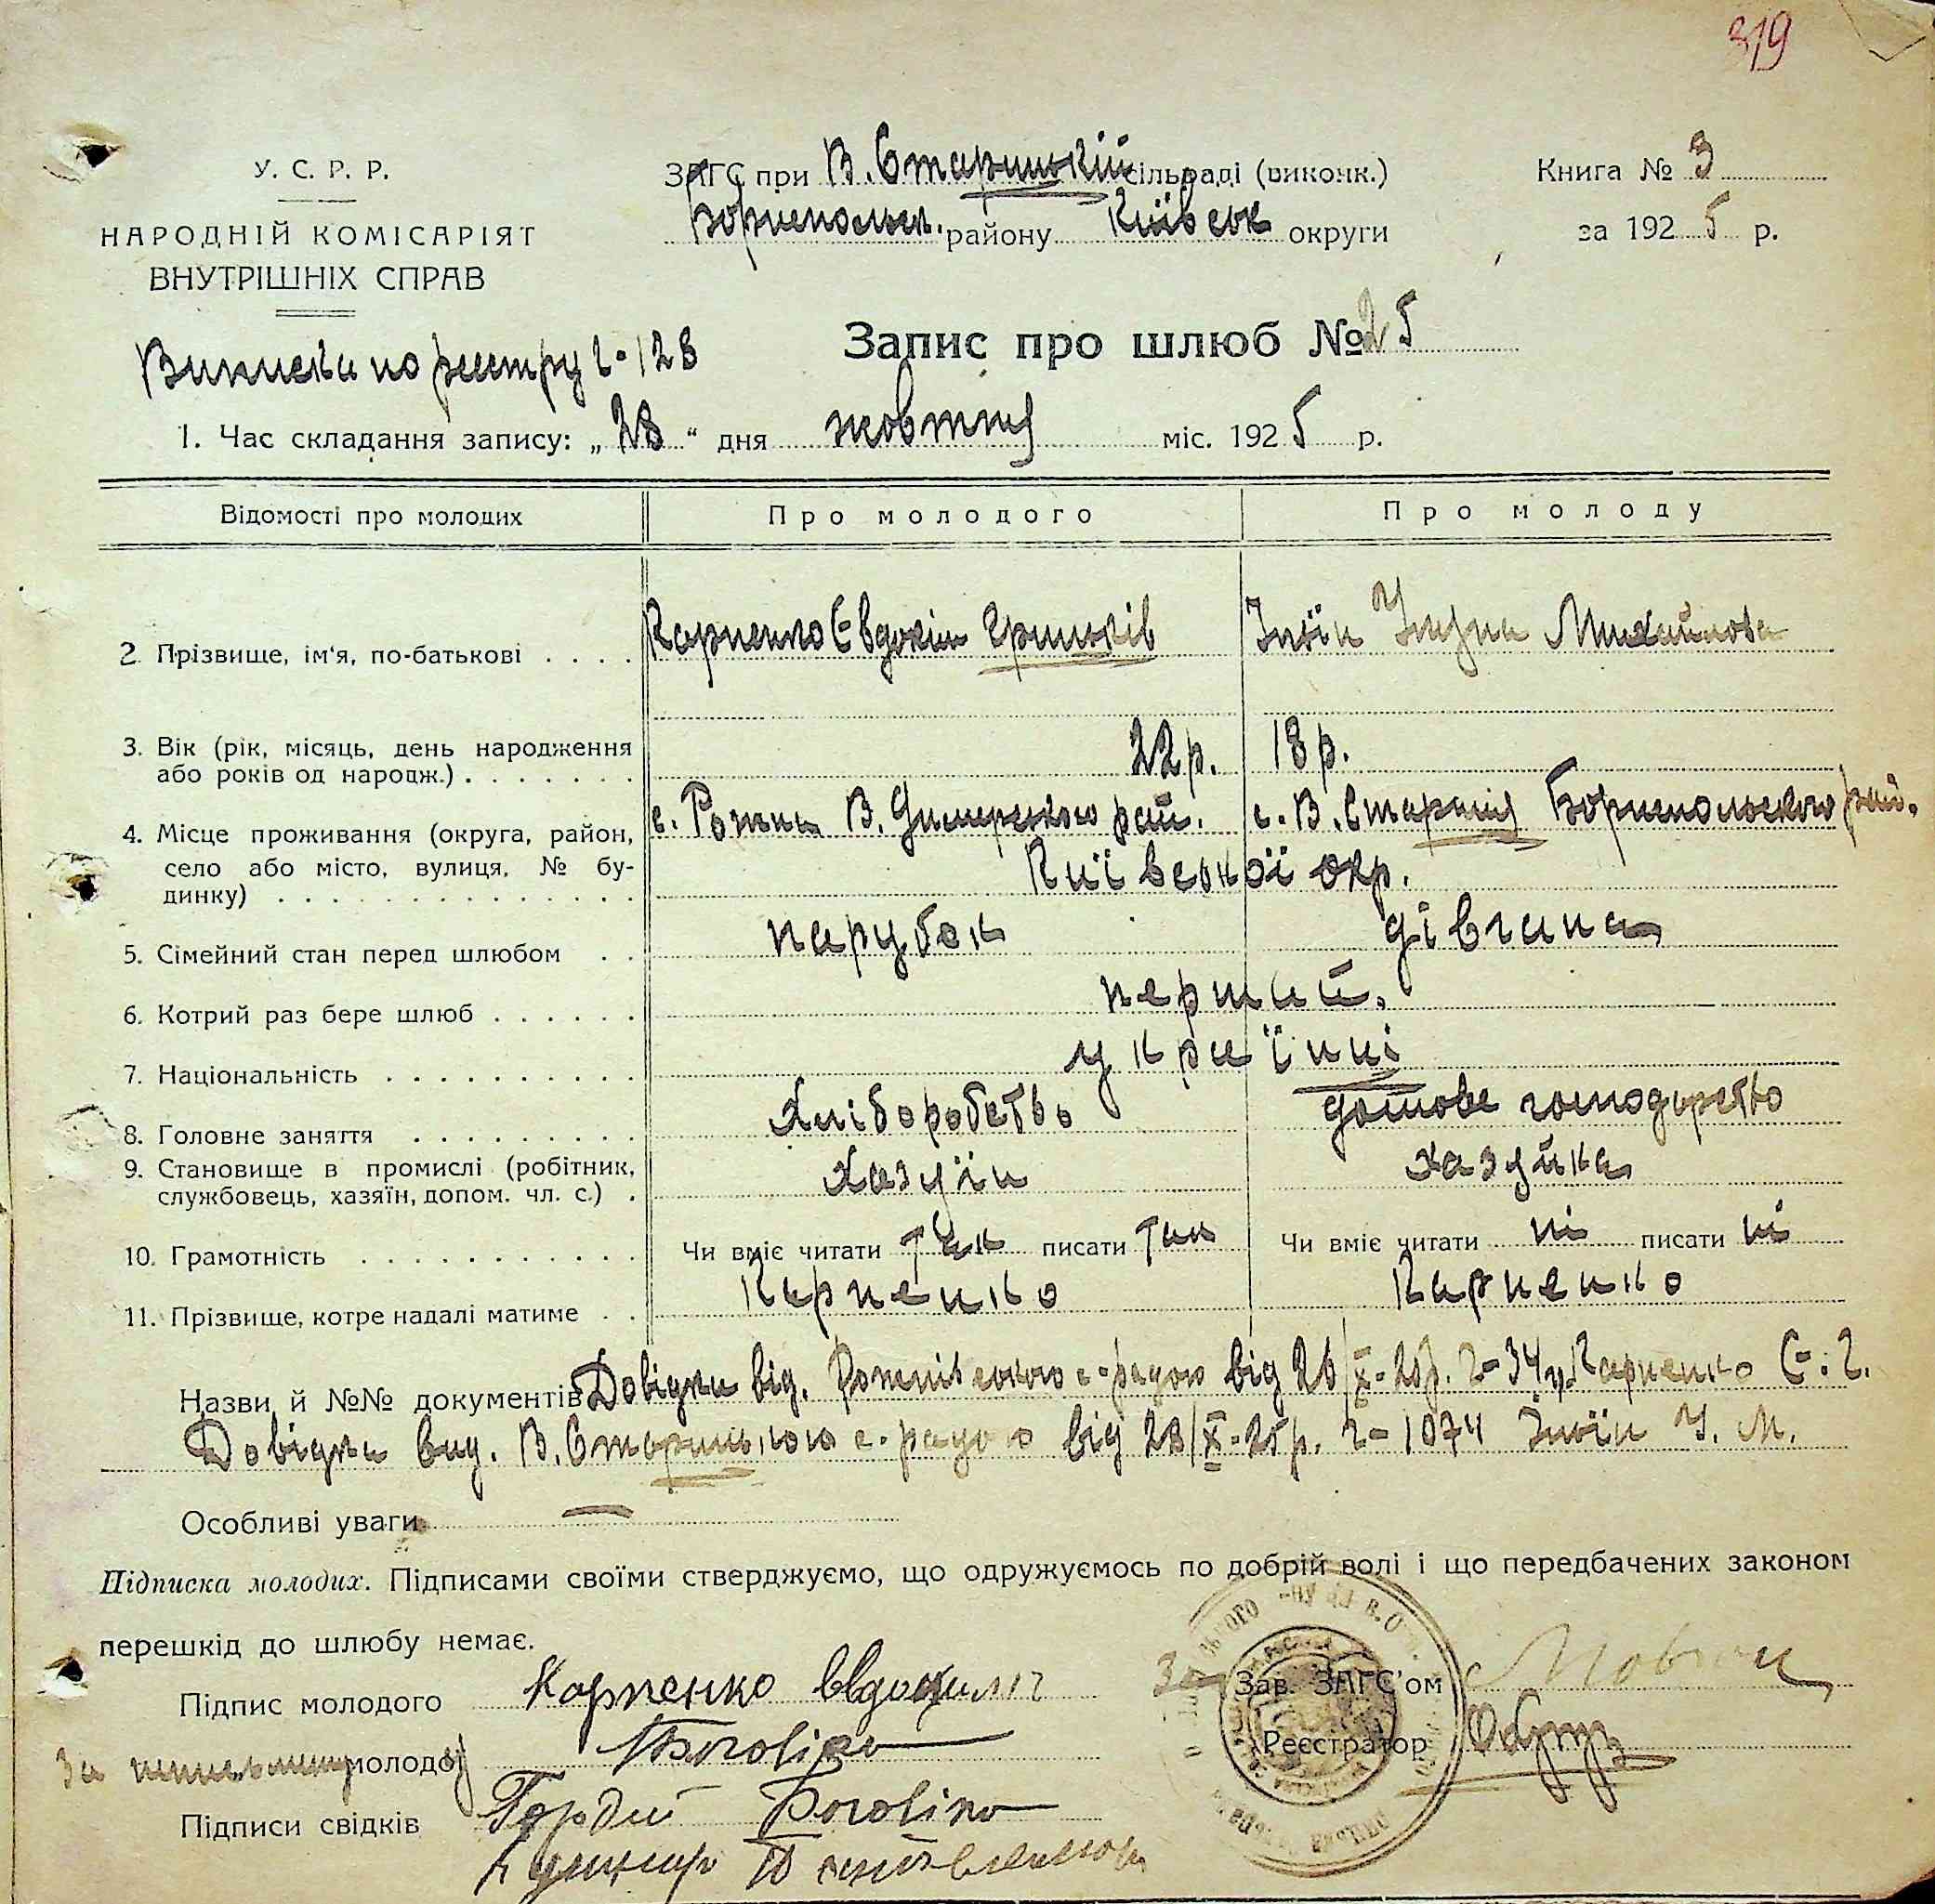 319
У. С. Р. Р.
НАРОДНІЙ КОМІСАРІЯТ
ВНУТРІШНІХ СПРАВ
ЗАГС при В. Старицькій сільраді (виконк.)
Бориспольск. району Київськ округи
Книга № 3
за 1925 р.
Виписка по реєстру ч-128
Запис про шлюб № 25
1. Час складання запису: „28“ дня жовтня міс. 1925 р.
Відомості про молодих Про молодого Про молоду
2 Прізвище, ім‘я, по-батькові . . . . Карпенко Євдоким Грицьків Михайлова
3. Вік (рік, місяць, день народження
або років од народж.) . . . . . . . 22 р. 18 р.
4. Місце проживання (округа, район, с. Рожни В. Димерського рай. с. В. Стариця Бориспольского рай.
село або місто, вулиця, № бу-
динку) . . . . . . . . . . . . . . . Київської окр.
5. Сімейний стан перед шлюбом . . парубок дівчина
6. Котрий раз бере шлюб . . . . . . перший.
7. Національність . . . . . . . . . . . українці
8. Головне заняття . . . . . . . . . . хліборобство домове господарство
9. Становище в промислі (робітник,
службовець, хазяїн, допом. чл. с.) . хазяїн хазяйка
10. Грамотність . . . . . . . . . . . Чи вміє читати так писати так Чи вміє читати ні писати ні
11. Прізвище, котре надалі матиме . . Карпенко Карпенко
Назви й №№ документів Довідка від. Рожнівською с-радою від 26/X-25р. ч-34 Карпенко Є. Г.
Довідка вид. В. Старицькою с-радою від 28/X-25р. ч-1074 М.
Особливі уваги —
Підписка молодих. Підписами своїми стверджуємо, що одружуємось по добрій волі і що передбачених законом
перешкід до шлюбу немає.
Підпис молодого Карпенко
За неписьменну молоду Боголіко
Підписи свідків Гордій Боголіко
За Зав. ЗАГС'ом
Реєстратор